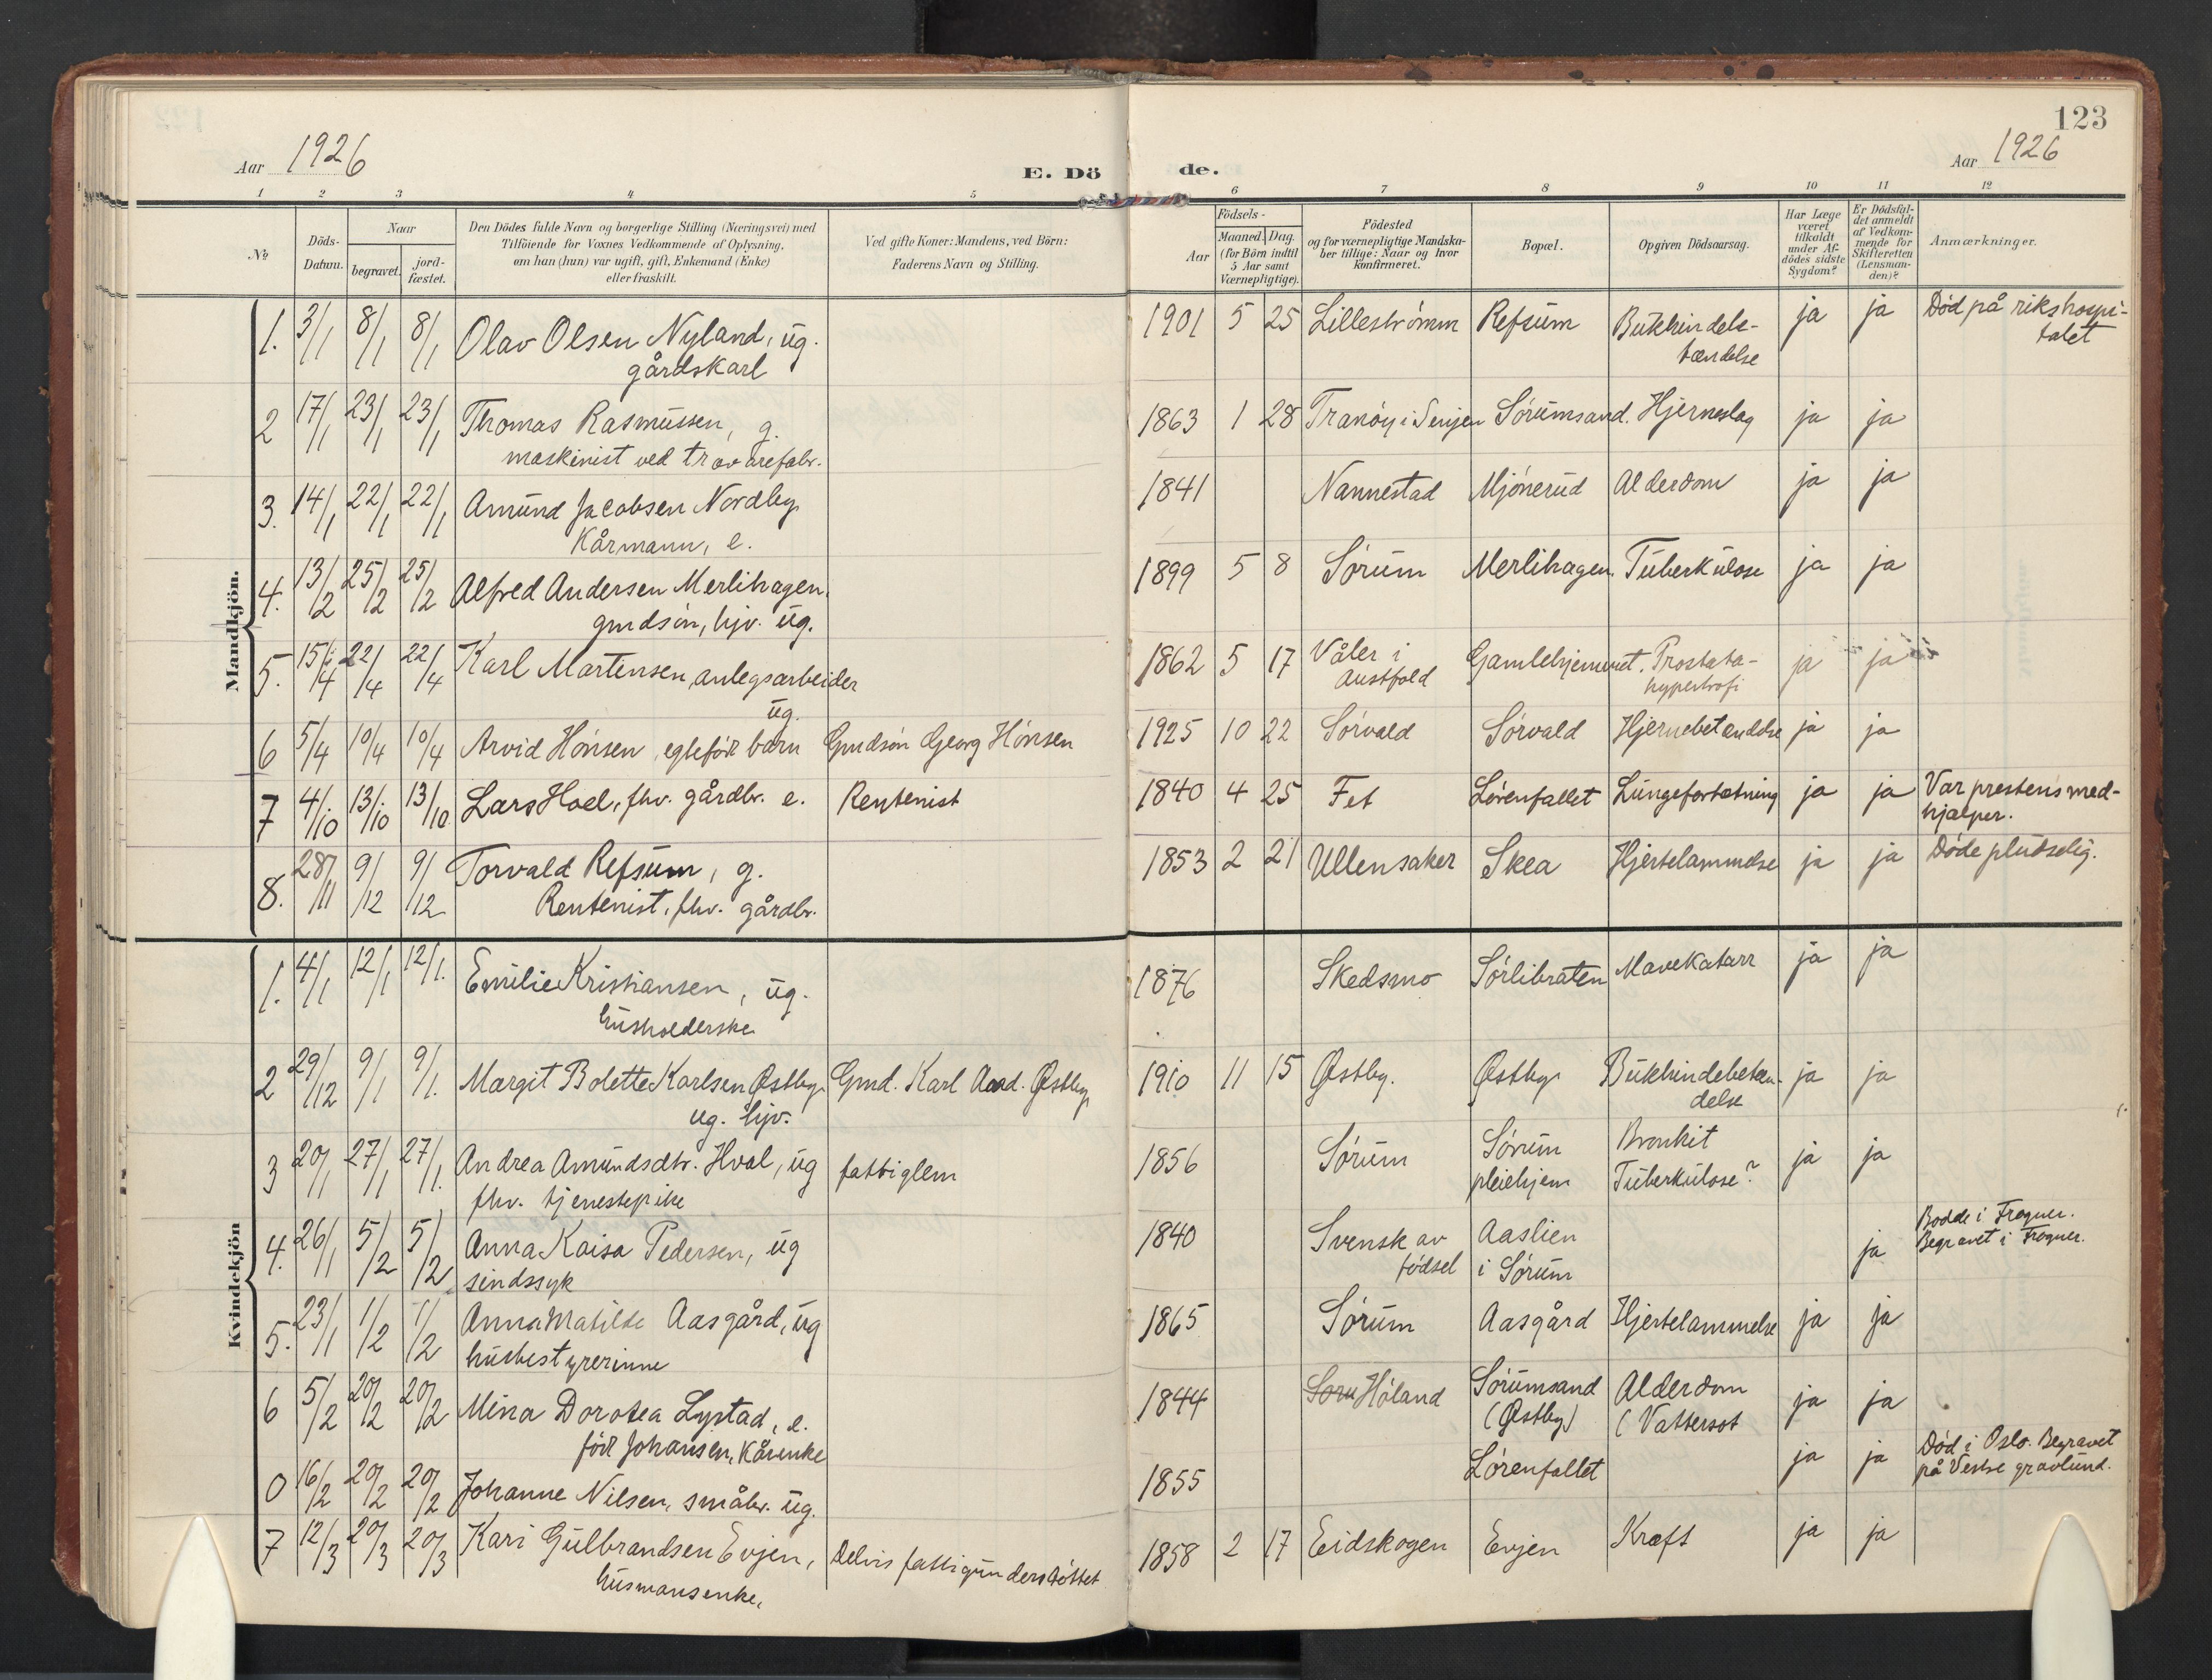 123
Aar 1926
E. Dö
de.
Aar 1926
1 2 3 4 5 6 7 8 9 10 11 12
No
Döds-
Datum.
Naar
begravet.
jord-
fæstet.
Den Dödes fulde Navn og borgerlige Stilling (Næringsvei) med
Tilföiende for Voxnes Vedkommende af Oplysning,
om han (hun) var ugift, gift, Enkemand (Enke)
eller fraskilt.
Ved gifte Koner: Mandens, ved Börn:
Faderens Navn og Stilling.
Födsels-
Aar
Maaned. Dag.
(for Börn indtil
5 Aar samt
Værnepligtige).
Födested
og for værnepligtige Mandska-
ber tillige: Naar og hvor
konfirmeret.
Bopæl.
Opgiven Dödsaarsag.
Har Læge
været
tilkaldt
under Af-
dödes sidste
Sygdom?
Er Dödsfal-
det anmeldt
af Vedkom-
mende for
Skifteretten
(Lensman-
den)?
Anmærkninger.
Mandkjön.
1. 3/1 8/1 8/1 Olav Olsen Nyland, ug.
gårdskarl
1901 5 25 Lillestrømm Refsum Bukhindebe-
tændelse
ja ja Død på rikshospi-
talet
2 17/1 23/1 23/1 Thomas Rasmussen, g.
maskinist ved trævarefabr.
1863 1 28 Tranøy i Senjen Sørumsand. Hjerneslag ja ja
3. 14/1 22/1 22/1 Amund Jacobsen Nordby
Kårmann, e.
1841 Nannestad Mjønerud Alderdom ja ja
4. 13/2 25/2 25/2 Alfred Andersen Merlihagen,
gmdsøn, hjv. ug.
1899 5 8 Sørum Merlihagen. Tuberkulose ja ja
5. 15/4 22/4 22/4 Karl Martinsen, anlegsarbeider
ug.
1862 5 17 Våler i
Austfold
Gamlehjemmet. Prostata-
hypertrofi
ja ja
6 5/4 10/4 10/4 Arvid Hønsen, egtefødt barn Gmdsøn Georg Hønsen
1925 10 22 Sørvald Sørvald Hjernebetændelse ja ja
7 4/10 13/10 13/10 Lars Hoel, fhv. gårdbr. e. Rentenist
1840 4 25 Fet Lørenfallet Lungefortætning ja ja Var prestens med-
hjælper.
8. 28/11 9/12 9/12 Torvald Refsum, g.
Rentenist, fhv. gårdbr.
1853 2 21 Ullensaker Skea Hjertelammelse ja ja Døde pludselig.
Kvindekjön
1. 4/1 12/1 12/1. Emilie Kristiansen, ug.
husholderske
1876 Skedsmo Sørlibråten Mavekatarr ja ja
2 29/12 9/1 9/1. Margit Bolette Karlsen Østby Gmd. Karl And. Østby
ug. hjv.
1910 11 15 Østby. Østby Bukhindebetæn-
delse
ja ja
3 20/1 27/1 27/1. Andrea Amundsdtr. Hval, ug fattiglem
fhv. tjenestepike
1856 Sørum Sørum
pleiehjem
Bronkit
Tuberkulose?
ja ja
4. 26/1 5/2 5/2 Anna Kaisa Pedersen, ug
sindssyk
1840 Svensk av
fødsel
Aaslien
i Sørum
ja
Bodde i Frogner.
Begravet i Frogner.
5. 23/1 1/2 1/2 Anna Matilde Aasgård, ug
husbestyrerinne
1865 Sørum Aasgård Hjertelammelse ja ja
6 5/2 20/2 20/2 Mina Dorotea Lystad, e.
født Johansen, kårenke
1844 Soru Høland Sørumsand
(Østby)
Alderdom
(Vattersot
ja ja
0 16/2 20/2 20/2 Johanne Nilsen, småbr. ug.
1855 Lørenfallet ja ja Død i Oslo. Begravet
på Vestre gravlund.
7 12/3 20/3 20/3 Kari Gulbrandsen Evjen, Delvis fattigunderstøttet
husmansenke,
1858 2 17 Eidskogen Evjen Kræft ja ja